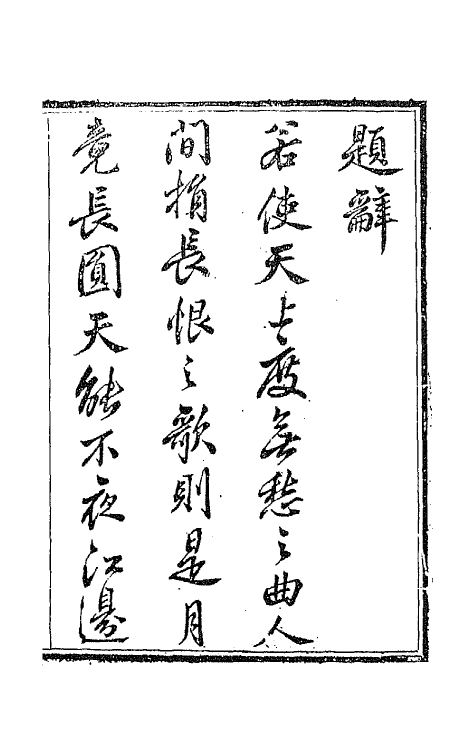 題辭
若使天上度無愁之曲人
間捐長恨之歌則是月
竟長圓天能不夜江邊